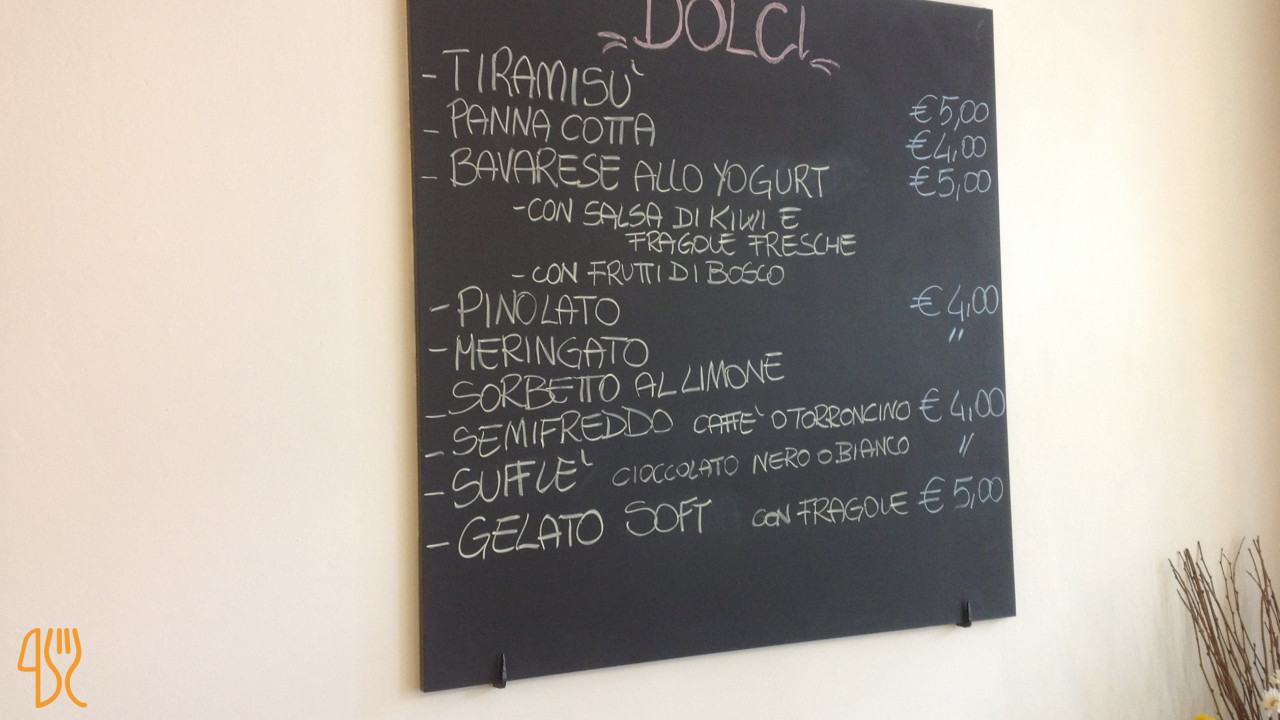 DOLCI
- TIRAMISU' € 5,00
- PANNA COTTA € 4,00
- BAVARESE ALLO YOGURT € 5,00
- CON SALSA DI KIWI E
FRAGOLE FRESCHE
- CON FRUTTI DI BOSCO
- PINOLATO € 4,00
- MERINGATO "
- SORBETTO AL LIMONE
- SEMIFREDDO CAFFE' O TORRONCINO € 4,00
- SUFFLE' CIOCCOLATO NERO O BIANCO "
- GELATO SOFT CON FRAGOLE € 5,00